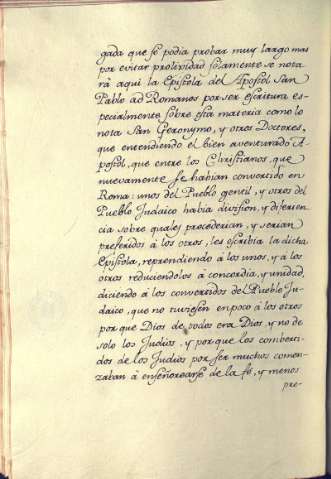 gada que se podia probar muy largo mas
por evitar prolixidad solamente se nota
rà aqui la Epistola del Apostol San
Pablo ad Romanos por ser escritura es-
pecialmente sobre esta materia como lo
nota San Geronymo, y otros Doctores,
que entendiendo el bien aventurado A-
postol, que entre los Christianos, que
nuevamente se habian convertido en
Roma: unos del Pueblo gentil, y otros del
Pueblo Judàico habia division, y diferen
cia sobre quales precederian, y serian
preferidos à los otros, les escribia la dicha
Epistola, reprendiendo à los unos, y à los
otros reduciendolos à concordia, y unidad,
diciendo à los convertidos del Pueblo Ju-
daico, que no tuviesen en poco à los otros
por que Dios de todos era Dios, y no de
solo los Judios, y por que los comberti-
dos de los Judios por ser muchos comen-
zaban à enseñorearse de la fé, y menos
pre-